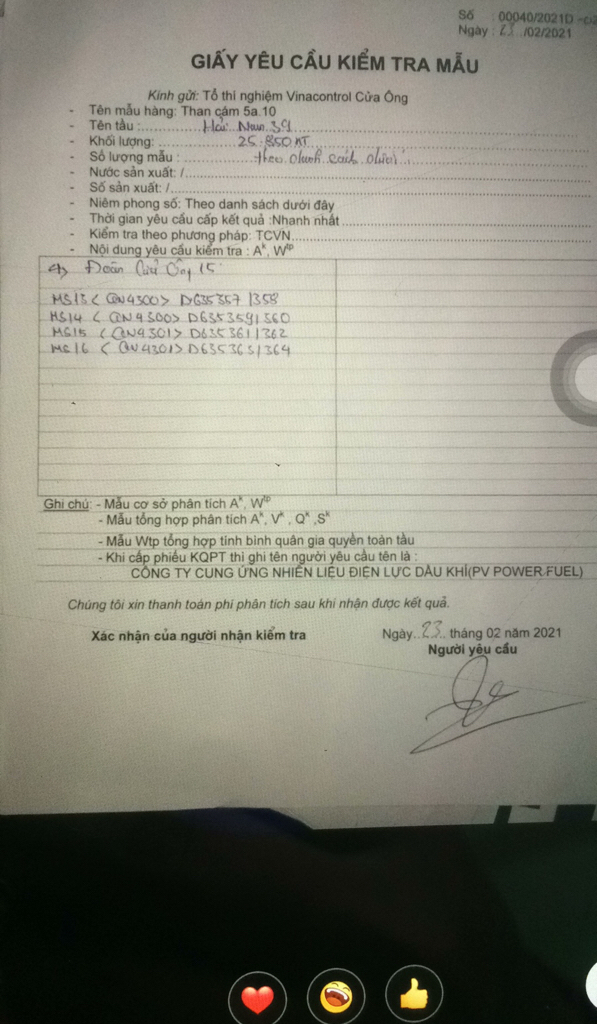 Số : 00040/2021D
Ngày : 23 /02/2021
GIẤY YÊU CẦU KIỂM TRA MẪU
Kính gửi: Tổ thí nghiệm Vinacontrol Cửa Ông
- Tên mẫu hàng: Than cám 5a.10
- Tên tàu : Hải Nam 39
- Khối lượng: 25.850 MT
- Số lượng mẫu : theo danh sách dưới
- Nước sản xuất: /
- Số sản xuất: /
- Niêm phong số: Theo danh sách dưới đây
- Thời gian yêu cầu cấp kết quả :Nhanh nhất
- Kiểm tra theo phương pháp: TCVN
- Nội dung yêu cầu kiểm tra : Aᵏ, Wᵗᵖ
Đoàn Cửa Ông 15
MS13 < QN4300> D635357 /358
MS14 < QN4300> D635359/360
MS15 < QN4301> D635361/362
MS16 < QN4301> D635363/364
Ghi chú: - Mẫu cơ sở phân tích Aᵏ, Wᵗᵖ
- Mẫu tổng hợp phân tích Aᵏ, Vᵏ , Qᵏ ,Sᵏ
- Mẫu Wtp tổng hợp tính bình quân gia quyền toàn tàu
- Khi cấp phiếu KQPT thì ghi tên người yêu cầu tên là :
CÔNG TY CUNG ỨNG NHIÊN LIỆU ĐIỆN LỰC DẦU KHÍ(PV POWER FUEL)
Chúng tôi xin thanh toán phí phân tích sau khi nhận được kết quả.
Xác nhận của người nhận kiểm tra
Ngày..23.. tháng 02 năm 2021
Người yêu cầu